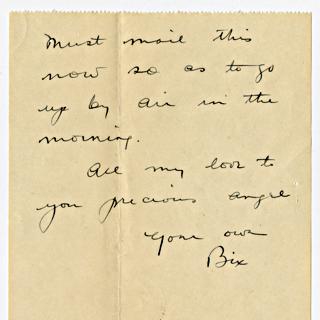 Must mail this
now so as to go
up by air in the
morning.
All my love to
you precious angel
Your own
Bix